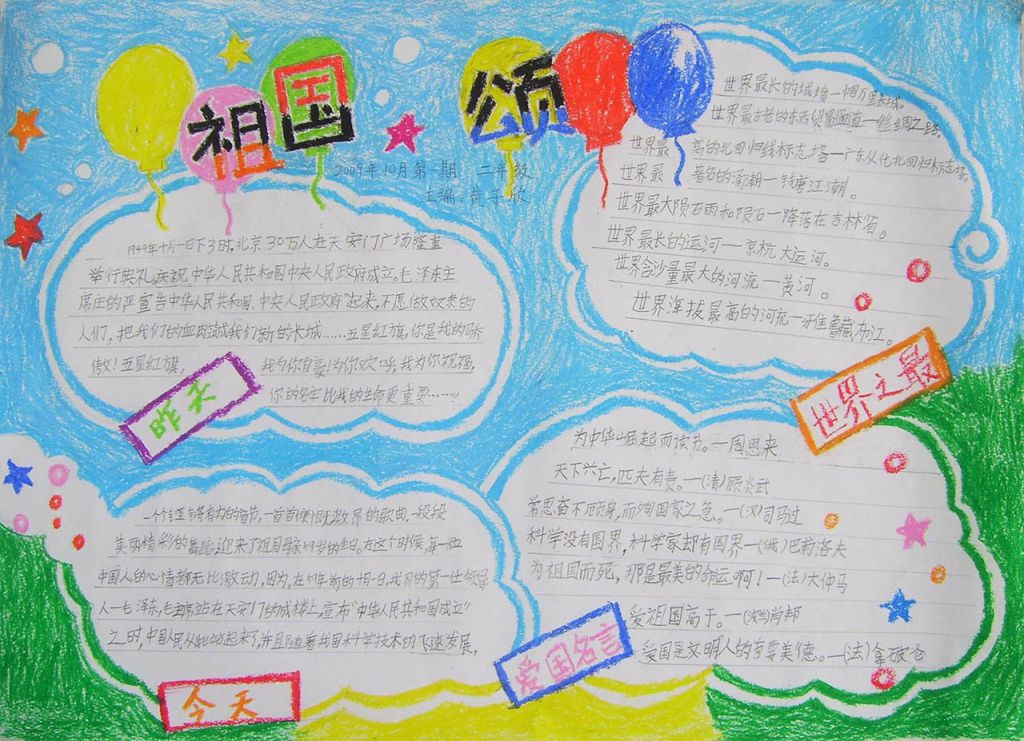 祖国颂
2009年10月第一期 二年级
主编:黄子
1949年十月一日下3时,北京30万人在天安门广场隆重
举行典礼,庆祝中华人民共和国中央人民政府成立。毛泽东主
席庄的严宣告中华人民共和国、中央人民政府"起来,不愿做奴隶的
人们,把我们的血肉筑成我们新的长城……五星红旗,你是我的骄
傲!五星红旗,我为你自豪!为你欢呼,我为你祝福,
你的名字比我的生命更重要……!
昨天
世界最长的城墙一万里长城。
世界最古老的东西贸易通道一丝绸之路。
世界最高的北回归线标志塔一广东从化北回归标志塔。
世界最著名的涌潮一钱塘江潮。
世界最大陨石雨和陨石一降落在吉林省。
世界最长的运河一京杭大运河。
世界含沙量最大的河流一黄河。
世界海拔最高的河流一雅鲁藏布江。
世界之最
一个个坚锵有力的音节,一首首慷慨激昂的歌曲,一段段
美丽精彩的舞蹈,迎来了祖国母亲的生日。在这个时候,每一位
中国人的心情都无比激动,因为,在年前的十月一日,我国的第一任领导
人一毛泽东,毛主席站在天安门的城楼上,宣布"中华人民共和国成立"
之时,中国人民从此站起来了,并且随着我国科学技术的飞速发展,
今天
为中华崛起而读书。一周恩来
天下兴亡,匹夫有责。一(清)顾炎武
常思奋不顾身,而殉国家之急。一(汉)司马迁
科学没有国界,科学家却有国界一(俄)巴甫洛夫
为祖国而死,那是最美的命运啊!一(法)大仲马
爱祖国高于。一(波兰)肖邦
爱国是文明人的首要美德。一(法)拿破仑
爱国名言